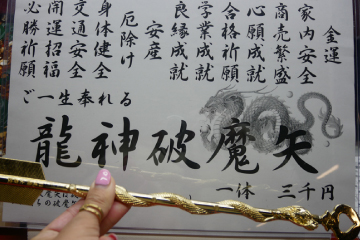 金運
家内安全
商売繁盛
心願成就
合格祈願
学業成就
良縁成就
安産
厄除け
身体健全
交通安全
開運招福
必勝祈願
ご一生奉れる
龍神破魔矢
一体 三千円